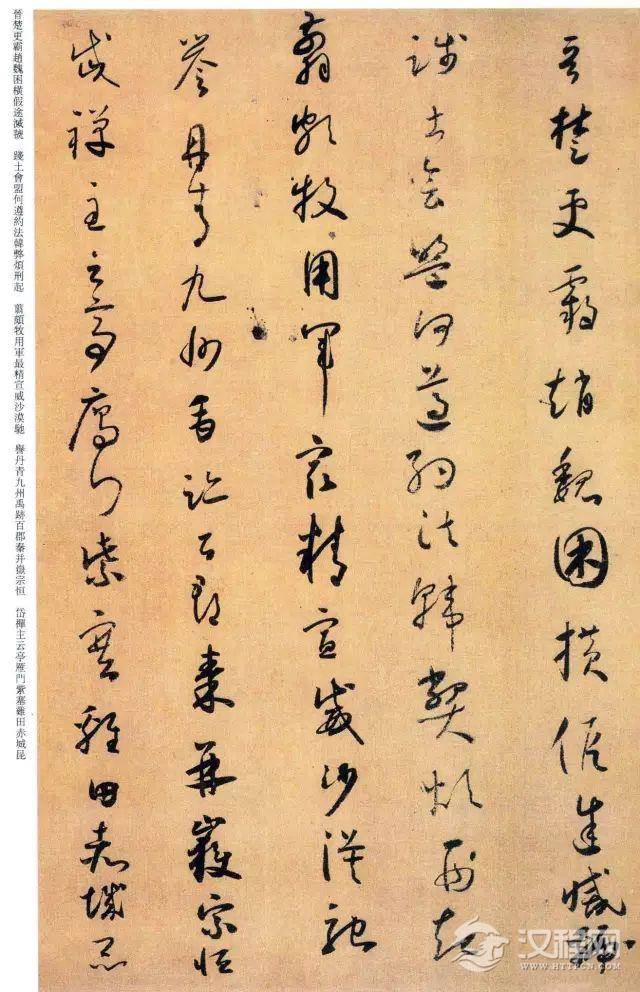 晉楚更霸趙魏困橫假途滅虢
踐土會盟何遵約法韓弊煩刑起
翦頗牧用軍最精宣威沙漠馳
譽丹青九州禹跡百郡秦并嶽宗恒
岱禪主云亭雁門紫塞雞田赤城昆
晉楚更霸趙魏困橫假途滅虢 踐土會盟何遵約法韓弊煩刑起 翦頗牧用軍最精宣威沙漠馳 譽丹青九州禹跡百郡秦并嶽宗恒 岱禪主云亭雁門紫塞雞田赤城昆
汉程网
WWW.HTTPCN.COM